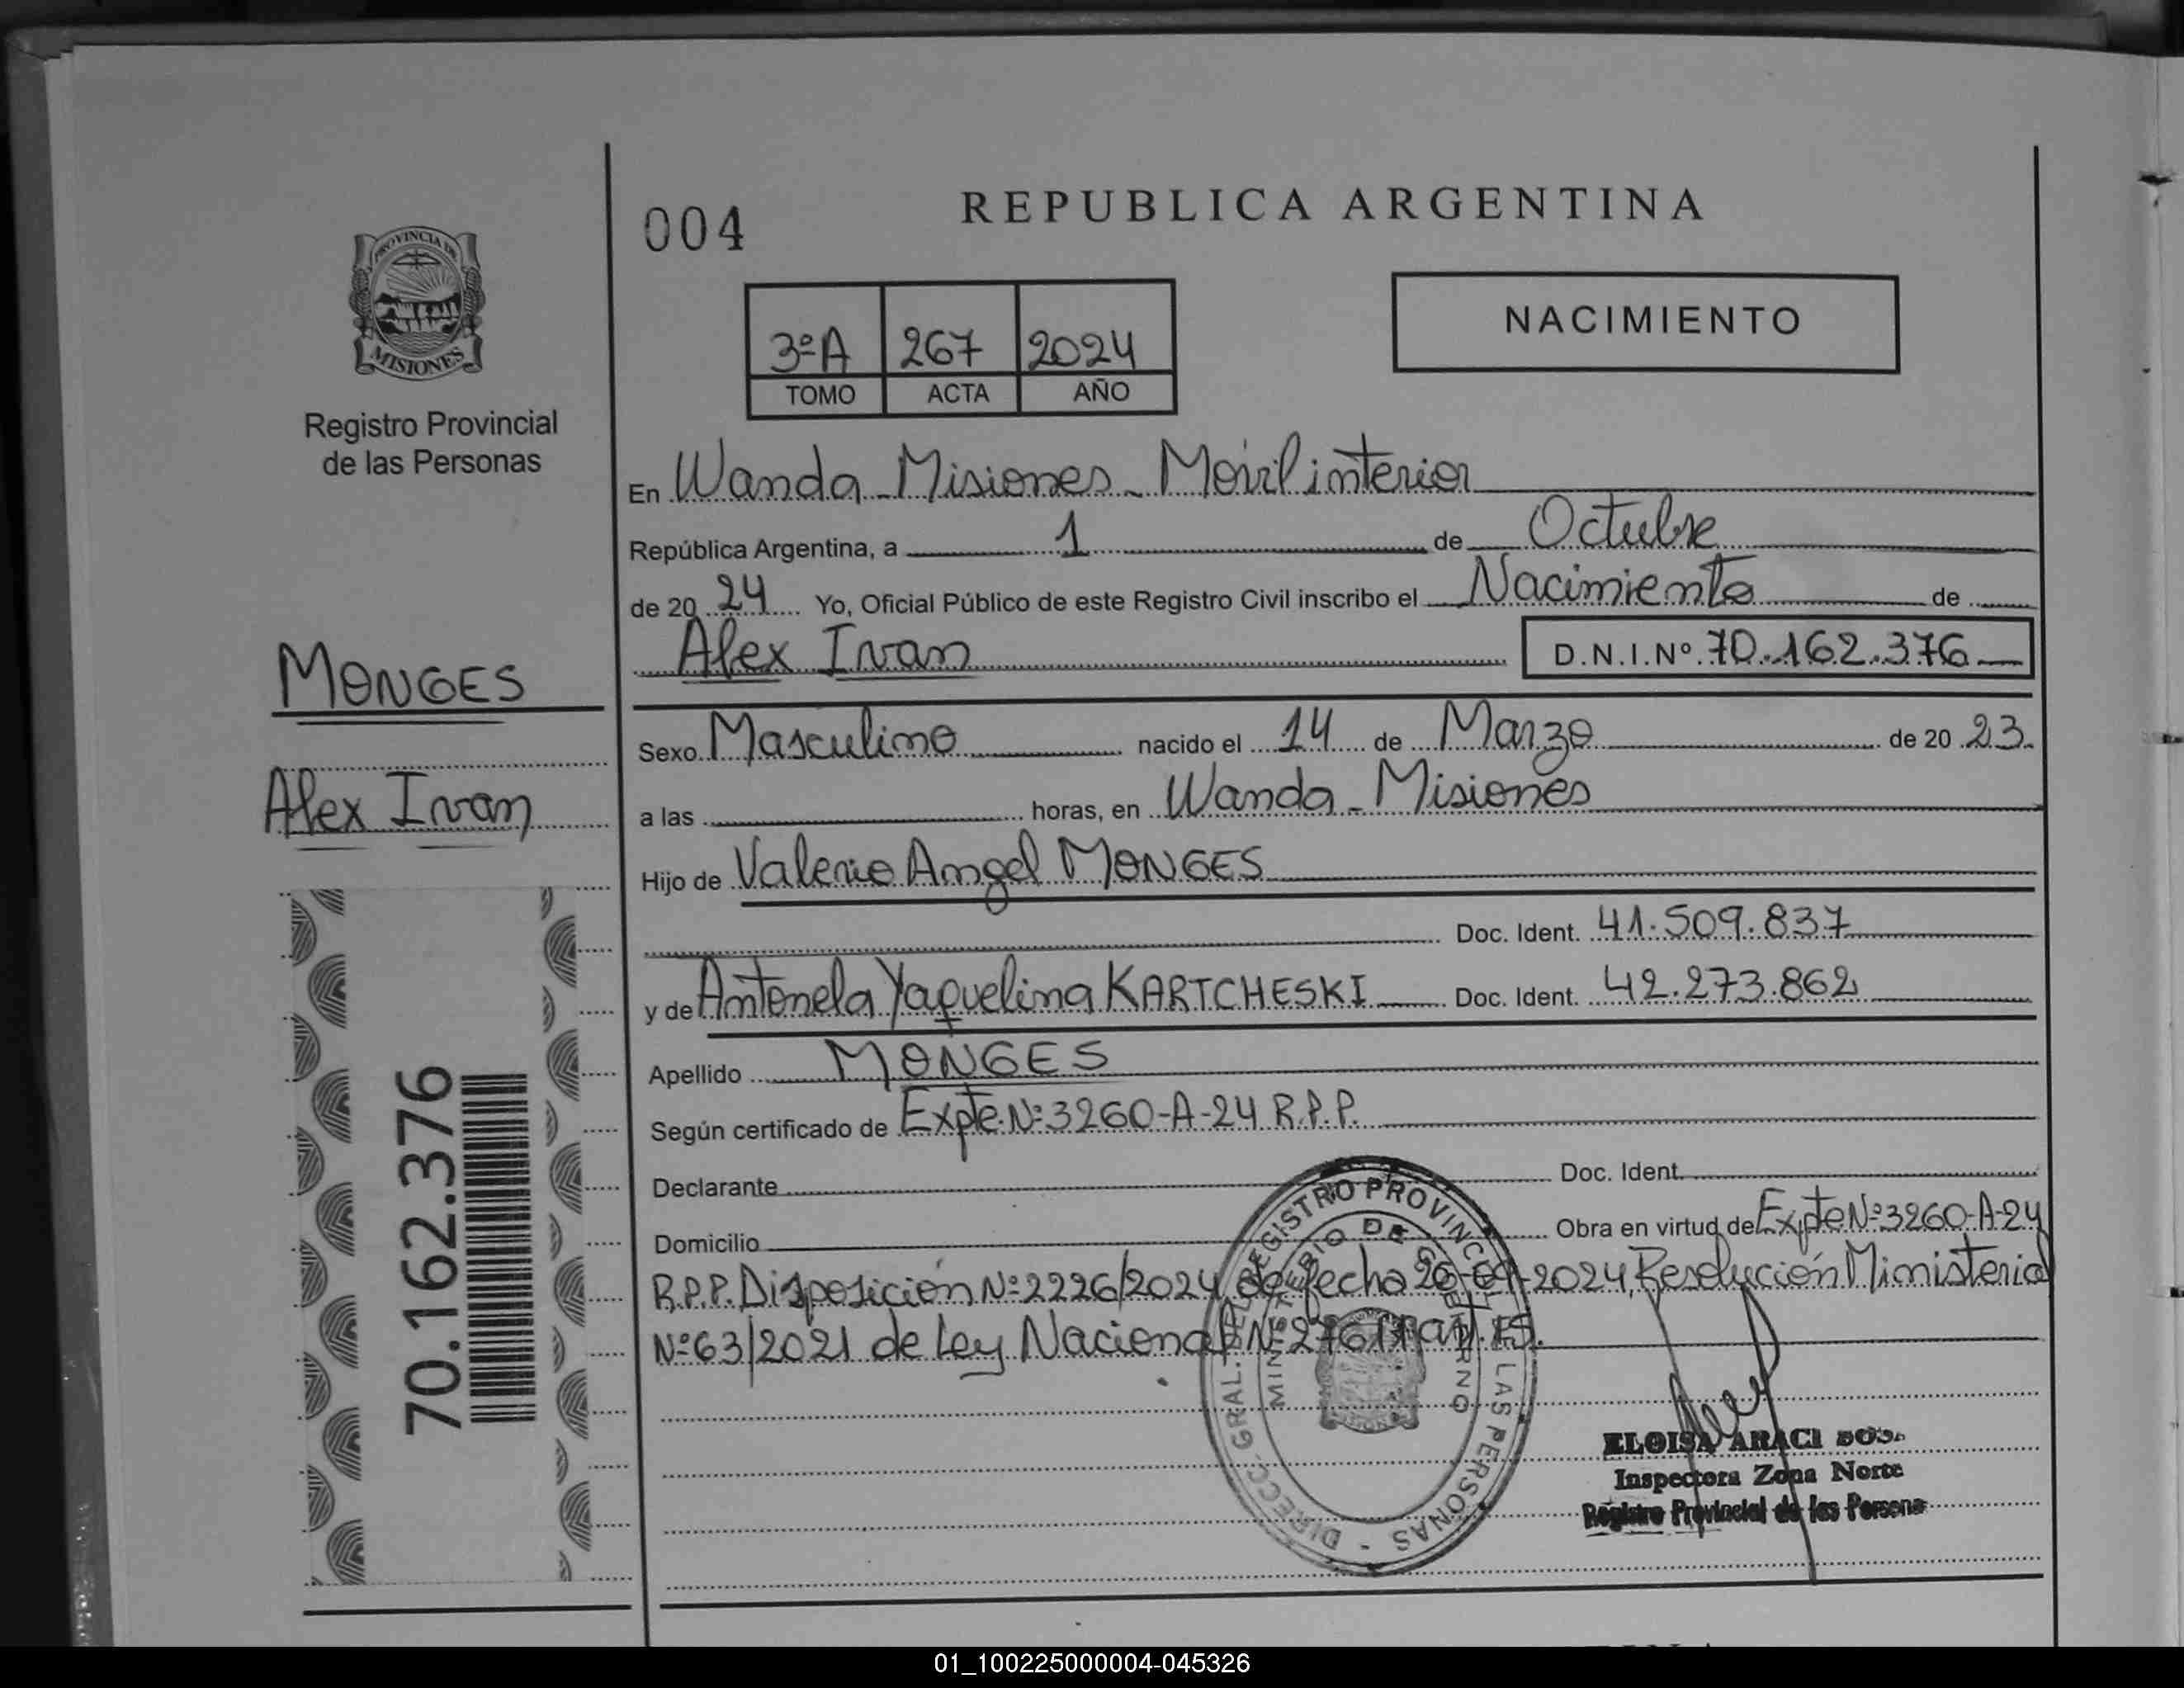 PROVINCIA DE
MISIONES
Registro Provincial
de las Personas
MONGES
Alex Ivan
70.162.376
004
REPUBLICA ARGENTINA
3º A 267 2024
TOMO ACTA AÑO
NACIMIENTO
En Wanda - Misiones - Movil interior
República Argentina, a 1 de Octubre
de 20 24 Yo, Oficial Público de este Registro Civil inscribo el Nacimiento de
Alex Ivan D.N.I.Nº 70.162.376
Sexo Masculino nacido el 14 de Marzo de 20 23
a las horas, en Wanda - Misiones
Hijo de Valerio Angel MONGES
Doc. Ident. 41.509.837
y de Antonela Yaquelina KARTCHESKI Doc. Ident. 42.273.862
Apellido MONGES
Según certificado de Expte. Nº 3260-A-24 R.P.P.
Declarante Doc. Ident.
Domicilio Obra en virtud de Expte Nº 3260-A-24
R.P.P. Disposición Nº 2226/2024 de fecha 26-09-2024, Resolución Ministerial
Nº 63/2021 de Ley Nacional Nº 27611 art. 15.
DIRECC. GRAL. DEL REGISTRO PROVINCIAL DE LAS PERSONAS -
MINISTERIO DE GOBIERNO
ELOISA ARACI
Inspectora Zona Norte
Registro Provincial de las Persona
01_100225000004-045326